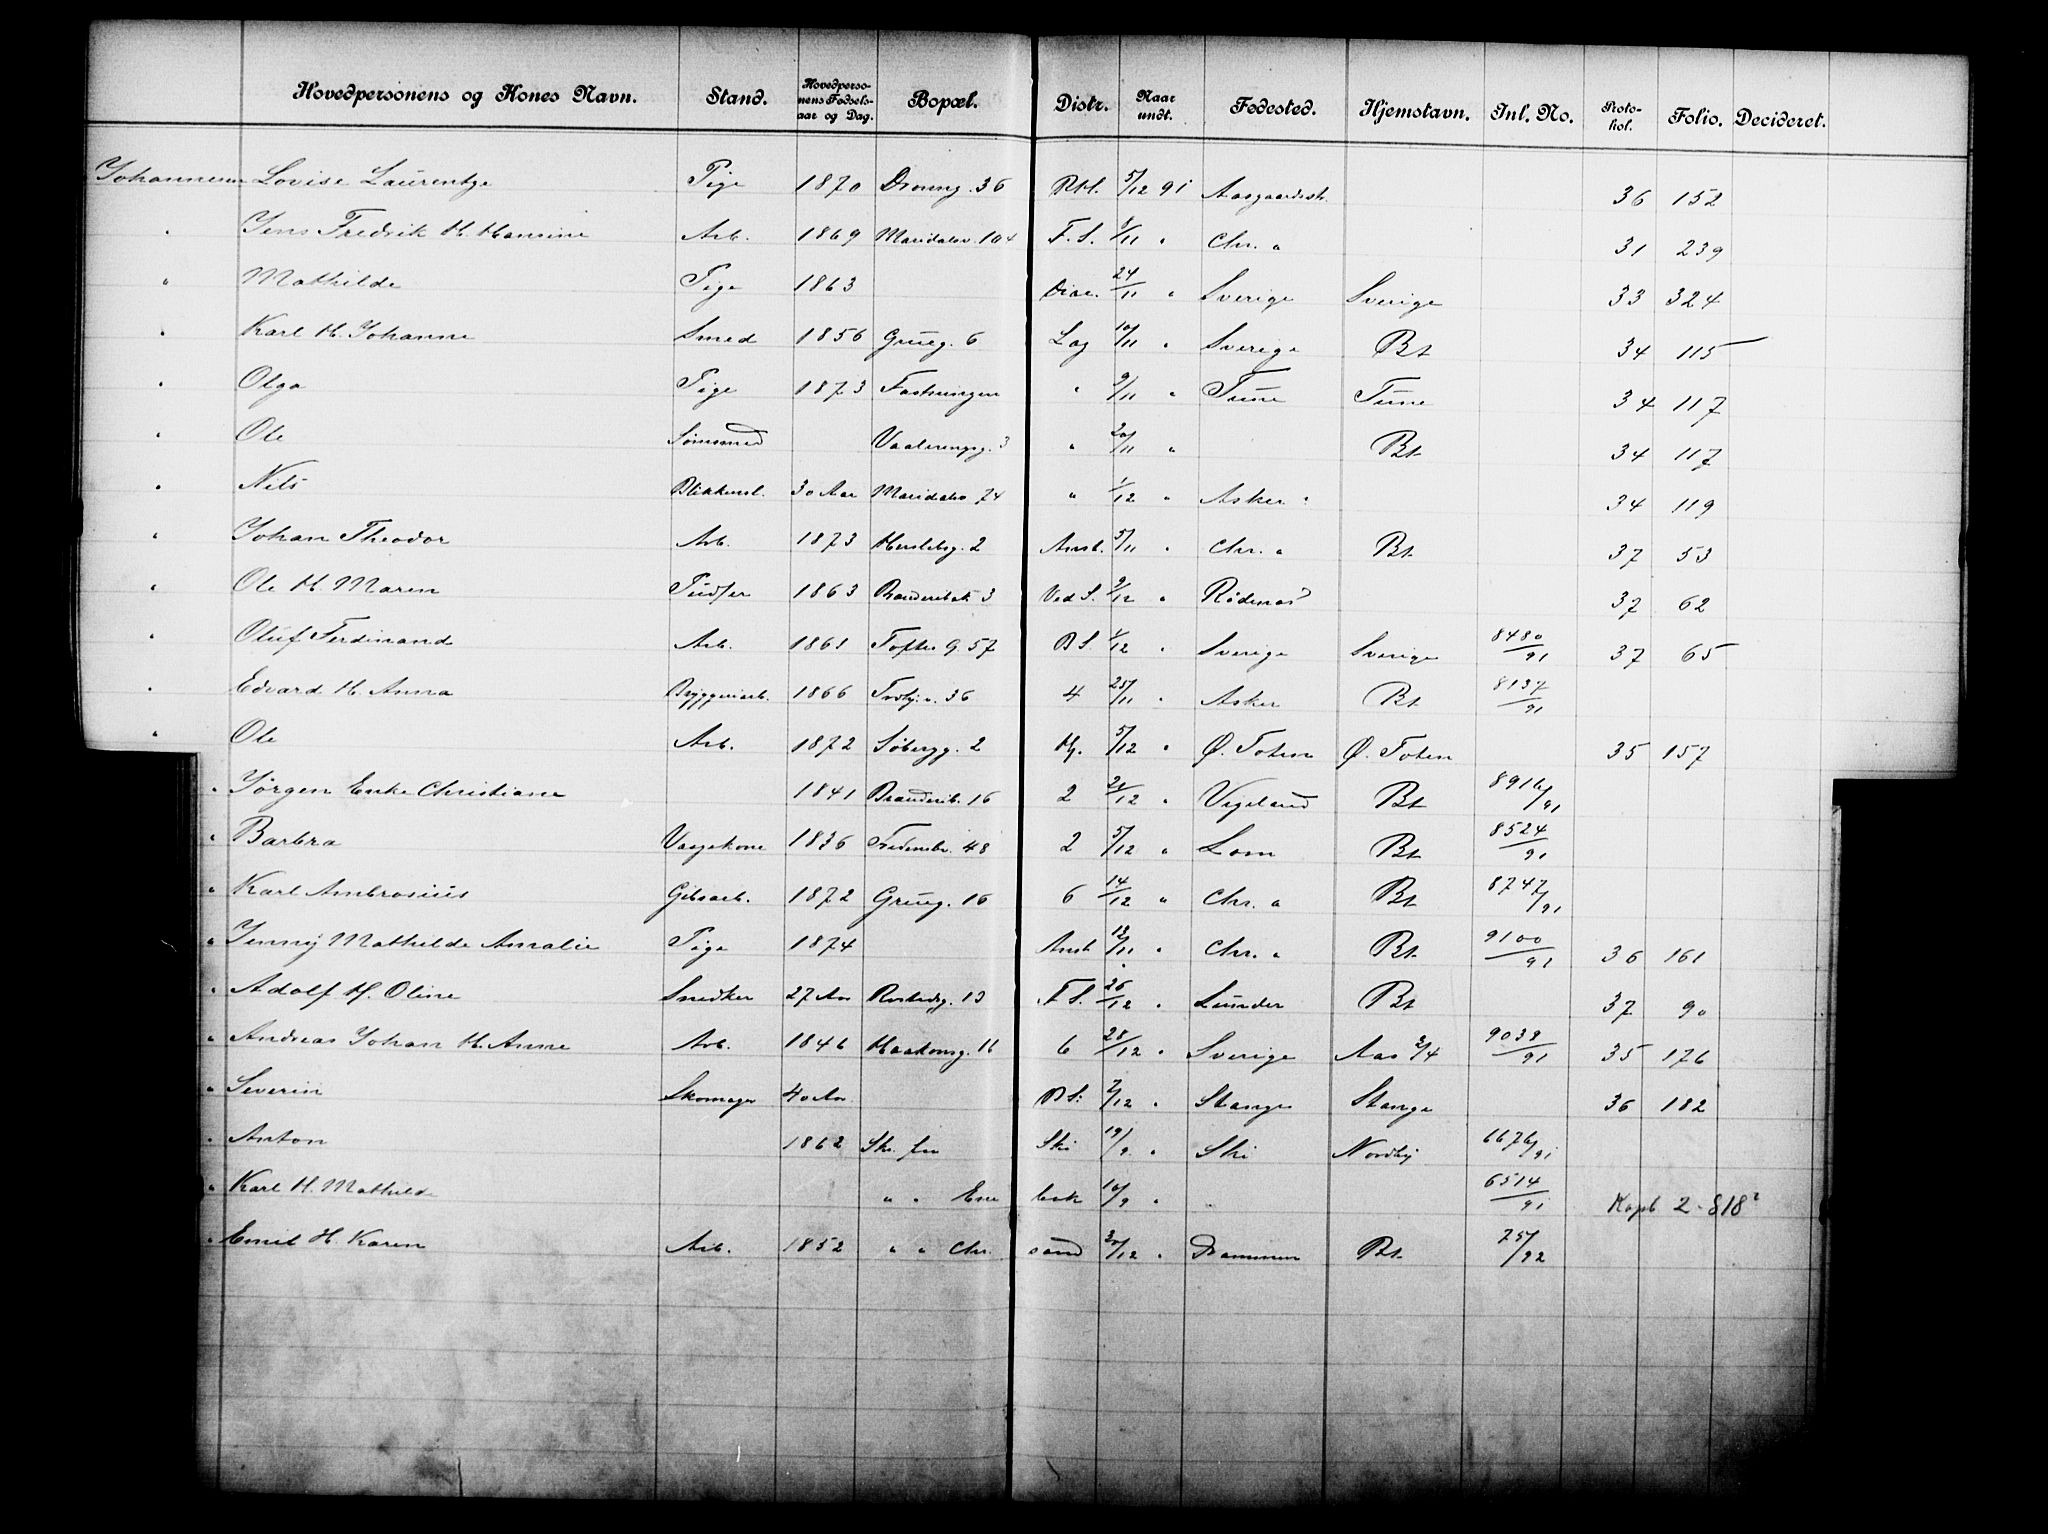 Hovedpersonens og Kones Navn. Stand. Hovedpersonens Fødselsaar og Dag. Bopæl. Distr. Naar undt. Fødested. Hjemstavn. Inl. No. Protokol. Folio. Decideret.
Johannesen Lovise Laurentze Pige 1870 Dronng. 36 Rst. 5/12 91 Aasgaardsstr. 36 152
" Jens Fredrik H. Hansine Arb. 1869 Maridalsv. 104 F. S. 8/11 " Chr. a 31 239
" Mathilde Pige 1863 24/11 " Sverige Sverige 33 324
" Karl H. Johanne Smed 1856 Grueg. 6 Lag 10/11 " Sverige Bt 34 115
" Olga Pige 1873 Fæstningen " 9/11 " Tune Tune 34 117
" Ole Sømsmed Vaalerengsg. 3 " 20/11 " Bt. 34 117
" Nils Blikkensl. 30 Aar Maridalsv 74 " 1/12 " Asker " 34 119
" Johan Theodor Arb. 1873 Herslebsg. 2 Amst. 5/11 " Chr. a Bt. 37 53
" Ole H. Maren 1863 3 Ved S. 9/12 " Rødenæs 37 62
" Oluf Ferdinand Arb. 1861 Toftes g. 57 B S. 1/12 " Sverige Sverige 8480/91 37 65
" Edvard H. Anna Bryggeriarb. 1866 36 4 25/11 " Asker Bt 8137/91
" Ole Arb. 1872 Søbergg. 2 Hj. 5/12 " Ø. Toten Ø. Toten 35 157
" Jørgen Enke Christiane 1841 16 2 21/12 " Vigeland Bt 8916/91
" Barbra Vaagekone 1836 Fredensb. 48 2 5/12 " Lom Bt 8524/91
" Karl Ambrosius Gibsarb. 1872 Grueg. 16 6 14/12 " Chr. a Bt 8747/91
" Jenny Mathilde Amalie Pige 1874 Amst 18/11 " Chr. a Bt. 9100/91 36 161
" Adolf H. Oline Snedker 27 Aar Rostedsg. 13 F S. 26/12 " Lunder Bt 37 90
" Andreas Johan H. Anne Arb. 1846 Haakonsg. 16 6 28/12 " Sverige Aas 2/4 9039/91 35 176
" Severin Skomager 40 Aar B S. 7/12 " Stange Stange 36 182
" Anton 1862 Skr. fra Ski 19/9 " Ski Nordby 6676/91
" Karl H. Mathilde " " Enebak 16/9 " 6514/91 Kopb 2-818²
" Emil H. Karen Arb. 1852 " " Chr.sand 30/12 " Drammen Bt. 251/92